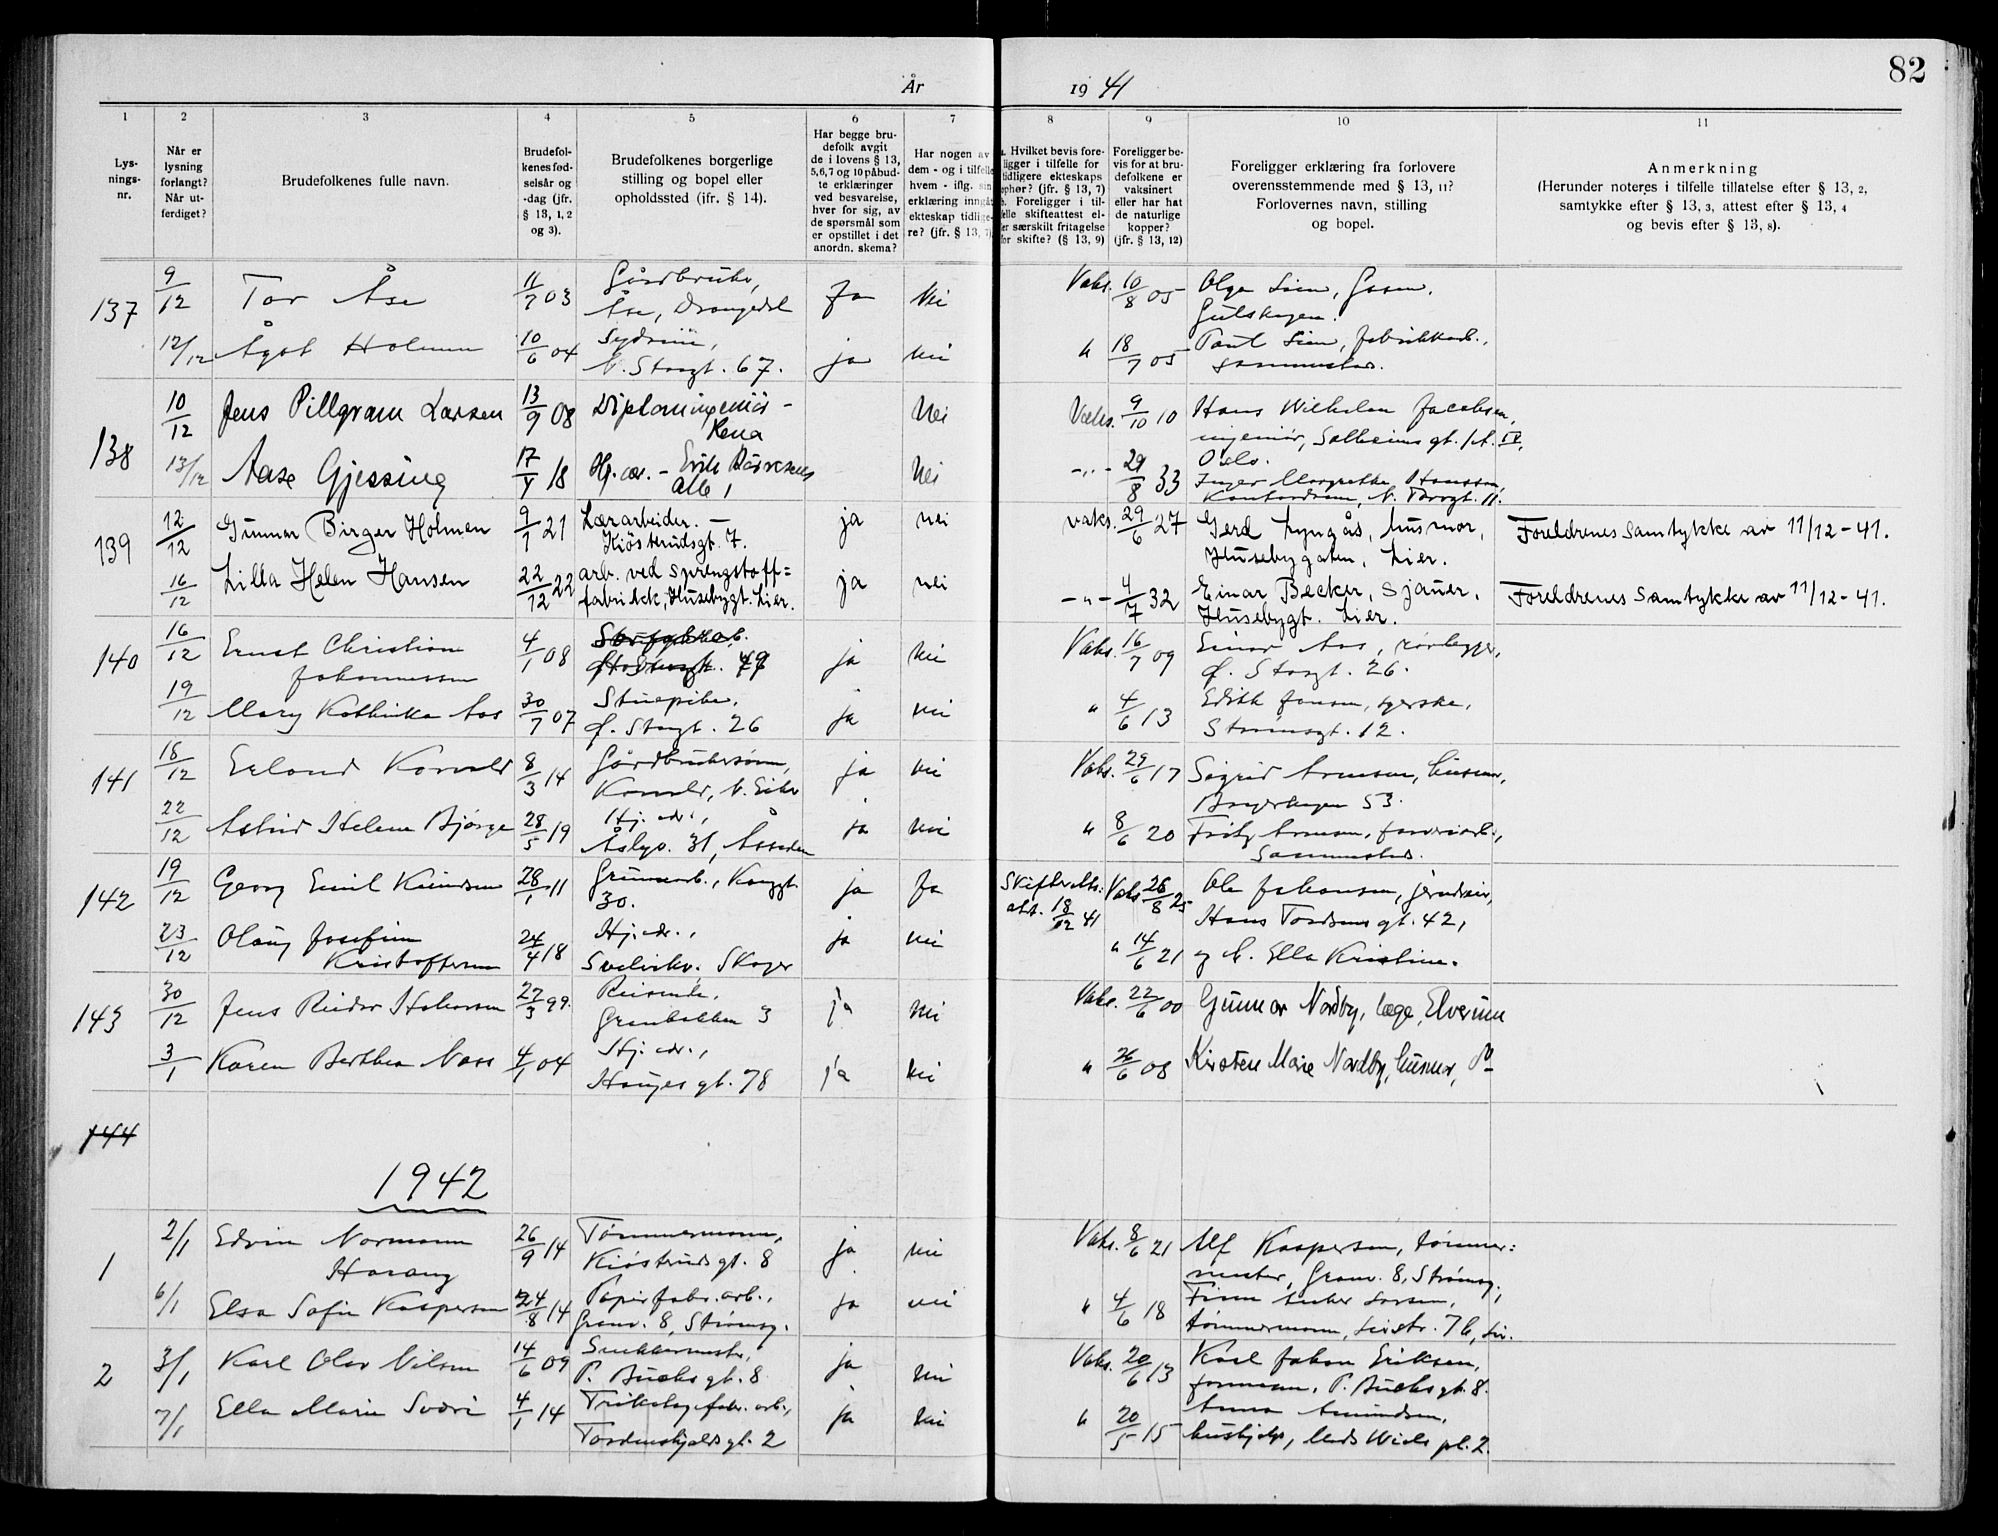 82
År 19 41
1 2 3 4 5 6 7 8 9 10 11
Lys-
nings-
nr.
Når er
lysning
forlangt?
Når ut-
ferdiget?
Brudefolkenes fulle navn.
Brudefol-
kenes fød-
selsår og
-dag (jfr.
§ 13, 1, 2
og 3).
Brudefolkenes borgerlige
stilling og bopel eller
opholdssted (ifr. § 14).
Har begge bru-
defolk avgit
de i lovens § 13,
5,6,7 og 10 påbud-
te erklæringer
ved besvarelse,
hver for sig, av
de spørsmål som
er opstillet i det
anordn. skema?
Har nogen av
dem - og i tilfelle
hvem - iflg. sin
erklæring inngåt
ekteskap tidlige-
re? (jfr. § 13, 7)
a. Hvilket bevis fore-
ligger i tilfelle for
tidligere ekteskaps
ophør? (jfr. § 13, 7)
b. Foreligger i til-
felle skifteattest el-
ler særskilt fritagelse
for skifte? (§ 13, 9)
Foreligger be-
vis for at bru-
defolkene er
vaksinert
eller har hat
de naturlige
kopper?
(jfr. § 13, 12)
Foreligger erklæring fra forlovere
overensstemmende med § 13, 11?
Forlovernes navn, stilling
og bopel.
Anmerkning
(Herunder noteres i tilfelle tillatelse efter § 13, 2,
samtykke efter § 13, 3, attest efter § 13, 4
og bevis efter § 13, 8).
137 9/12 Tor Åse 11/7 03 Gårdbruker, Åse, Drangedal Ja Nei Vaks. 10/8 05 Olga Lien, Gulskogen.
12/12 Ågot Holmen 10/6 04 N. Storgt. 67. ja nei " 18/7 05 Paul Lien, fabrikkarb., sammesteds.
138 10/12 Jens Pillgram Larsen 13/9 08 Diplomingeniør - Rena Nei Vaks. 9/10 10 Hans Wilhelm Jacobsen, ingeniør, Solheimsgt. IV. Oslo.
13/12 Aase Gjessing 17/V 18 Hj. vær. - Erik Børresens Alle 1 Nei -"- 29/8 33 Inger Margrethe Hansson, Kontordame, N. Torvgt. 11.
139 12/12 Gunnar Birger Holmen 9/1 21 Lærarbeider. - Kiøsterudsgt. 7. ja nei vaks. 29/6 27 Gerd Lyngås, husmor, Husebygaten, Lier. Foreldrenes Samtykke av 11/12-41.
16/12 Lilla Helen Hansen 22/12 22 arb. ved sprengstoff= fabrikk, Husebygt. Lier. ja nei -"- 4/7 32 Einar Becker, Sjauer, Husebygt. Lier. Foreldrenes Samtykke av 11/12-41.
140 16/12 Ernst Christian Johannessen 4/1 08 ja nei Vaks. 16/7 09 Einar Aas, rørlegger, Ø. Storgt. 26.
19/12 Mary Kathinka Aas 30/7 07 Stuepike. Ø. Storgt. 26 ja nei " 4/6 13 Edith Jonsen, syerske, Strømsgt. 12.
141 18/12 Erland Korvald 8/3 14 Gårdbrukersønn, Korvald, N. Eiker ja nei Vaks. 29/6 17 Sigrid Arnesen, husmor, 53.
22/12 Astrid Helene Bjørge 28/5 19 Hj. vær., 31, Åssiden ja nei " 8/6 20 Fritz Arnesen, sammesteds.
142 19/12 Georg Emil Knudsen 28/1 11 Grunnarb., Kongsgt. 30. ja Ja Skifteatt. 18/12 41 Vaks 26/8 25 Ole Johansen, jerndreier, Hans Tordsens gt. 42,
23/12 Olaug Josefine Kristoffersen 24/4 18 Hj. vær., Skoger ja nei " 14/6 21 og h. Ella Kristine.
143 30/12 Jens Reidar Halvorsen 27/3 99. Reisende, Granbakken 3 ja nei Vaks. 22/6 00 Gunnar Nordby, læge, Elverum
3/1 Karen Berthea Næss 4/1 04 Hj. vær., Hauges gt. 78 ja nei " 26/6 08 Kirsten Marie Nordby, husmor,
144
1942
1 2/1 Edvin Normann Harang 26/9 14 Tømmermann, Kiøsterudsgt. 8 ja nei Vaks. 8/6 21 Alf Kaspersen, tømmer= mester, Granv. 8, Strømsg.,
6/1 Elsa Sofie Kaspersen 24/8 14 Papirfabr. arb., Granv. 8, Strømsg. ja nei " 4/6 18 Finn Larsen, tømmermann, 7b, Lier.
2 3/1 Karl Olav Nilsen 14/6 09 Snekkermester, P. Buchs gt. 8 ja nei Vaks. 20/6 13 Karl Johan Eriksen, formann, P. Buchs gt. 8.
7/1 Ella Marie Sværi 4/1 14 Trikotagefabr. arb., Tordenskjolds gt. 2 ja nei " 20/5 15 Anna Amundsen, hushjelp, Mads Wiels pl. 2.